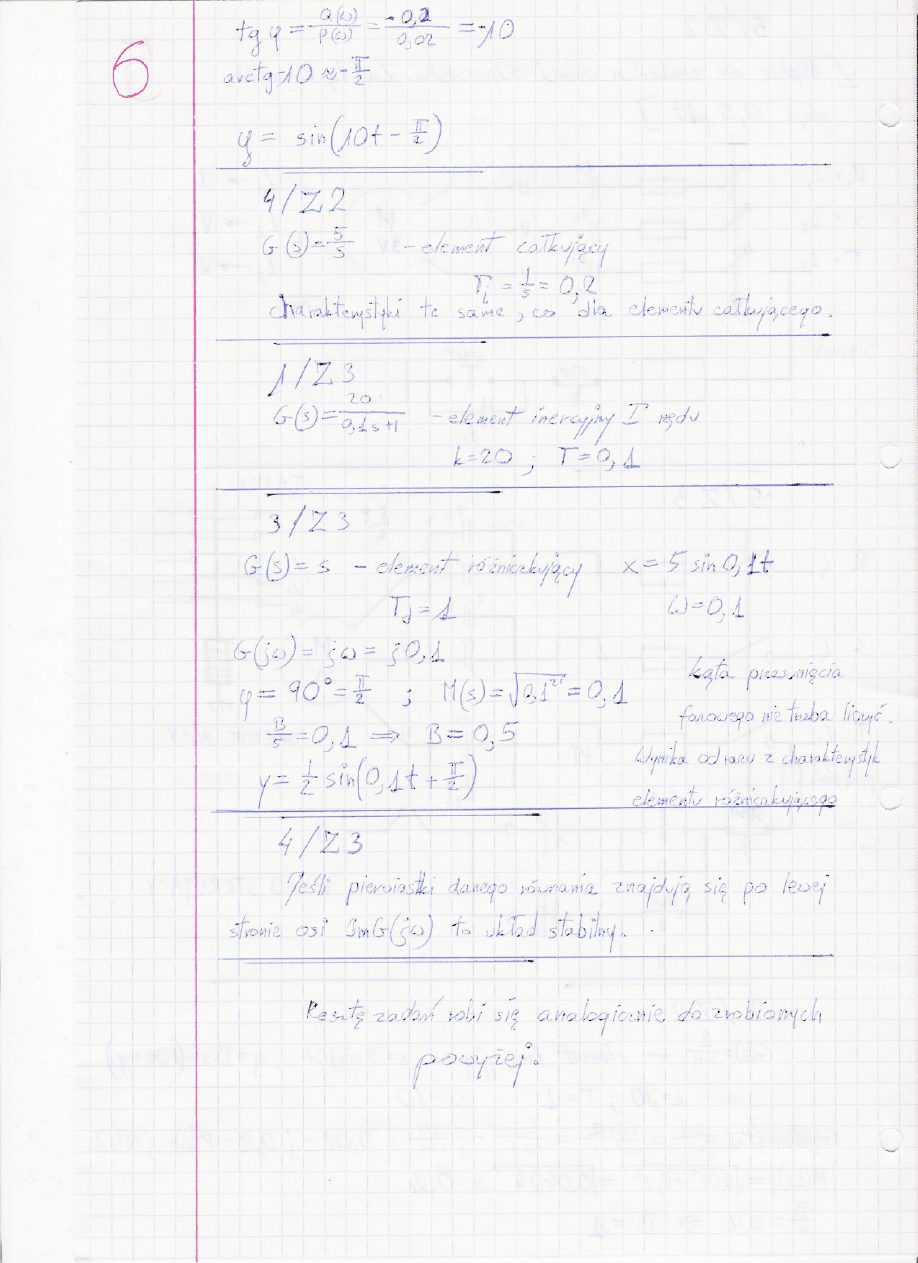 6
tg φ = Q(ω)/P(ω) = -0,2/0,02 = -10
arctg -10 ≈ -π/2
y = sin(10t - π/2)
4/Z2
G(s) = 5/s - element całkujący
Ti = 1/5 = 0,2
charakterystyki te same, co dla elementu całkującego.
1/Z3
G(s) = 20/0,1s+1 - element inercyjny I rzędu
k=20 ; T=0,1
3/Z3
G(s) = s - element różniczkujący x = 5 sin 0,1t
Td = 1 ω = 0,1
G(jω) = jω = j0,1
φ = 90° = π/2 ; M(s) = √0,1² = 0,1
B/5 = 0,1 ⇒ B = 0,5
y = 1/2 sin(0,1t + π/2)
kąta przesunięcia
fazowego nie trzeba liczyć.
Wynika od razu z charakterystyk
elementu różniczkującego
4/Z3
Jeśli pierwiastki danego równania znajdują się po lewej
stronie osi ImG(jω) to układ stabilny.
Resztę zadań robi się analogicznie do zrobionych
powyżej.